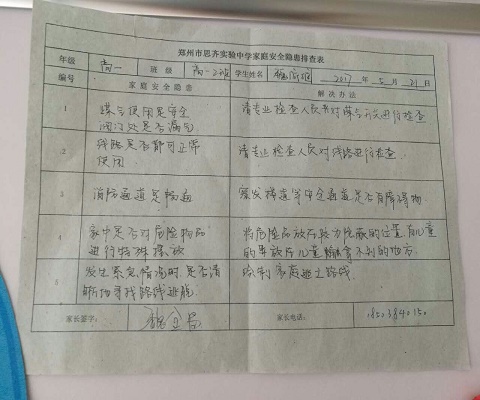 郑州市思齐实验中学家庭安全隐患排查表
年级 高一 班级 高一2班 学生姓名 2017年5月21日
编号 家庭安全隐患 解决办法
1 煤气使用是安全 请专业检查人员来对煤气开关进行检查
阀门处是否漏气
2 线路是否都可正常 请专业检查人员对线路进行检查.
使用
3 消防通道是畅通 察发楼道等安全通道是否有障碍物
4 家中是否对危险物品 将危险品放在较为隐蔽的位置 有儿童
进行特殊摆放 的要放在儿童 拿不到的地方
5 发生紧急情况时 是否清 绘制家庭逃生路线
晰地寻找路线逃脱
家长签字: 家长电话: